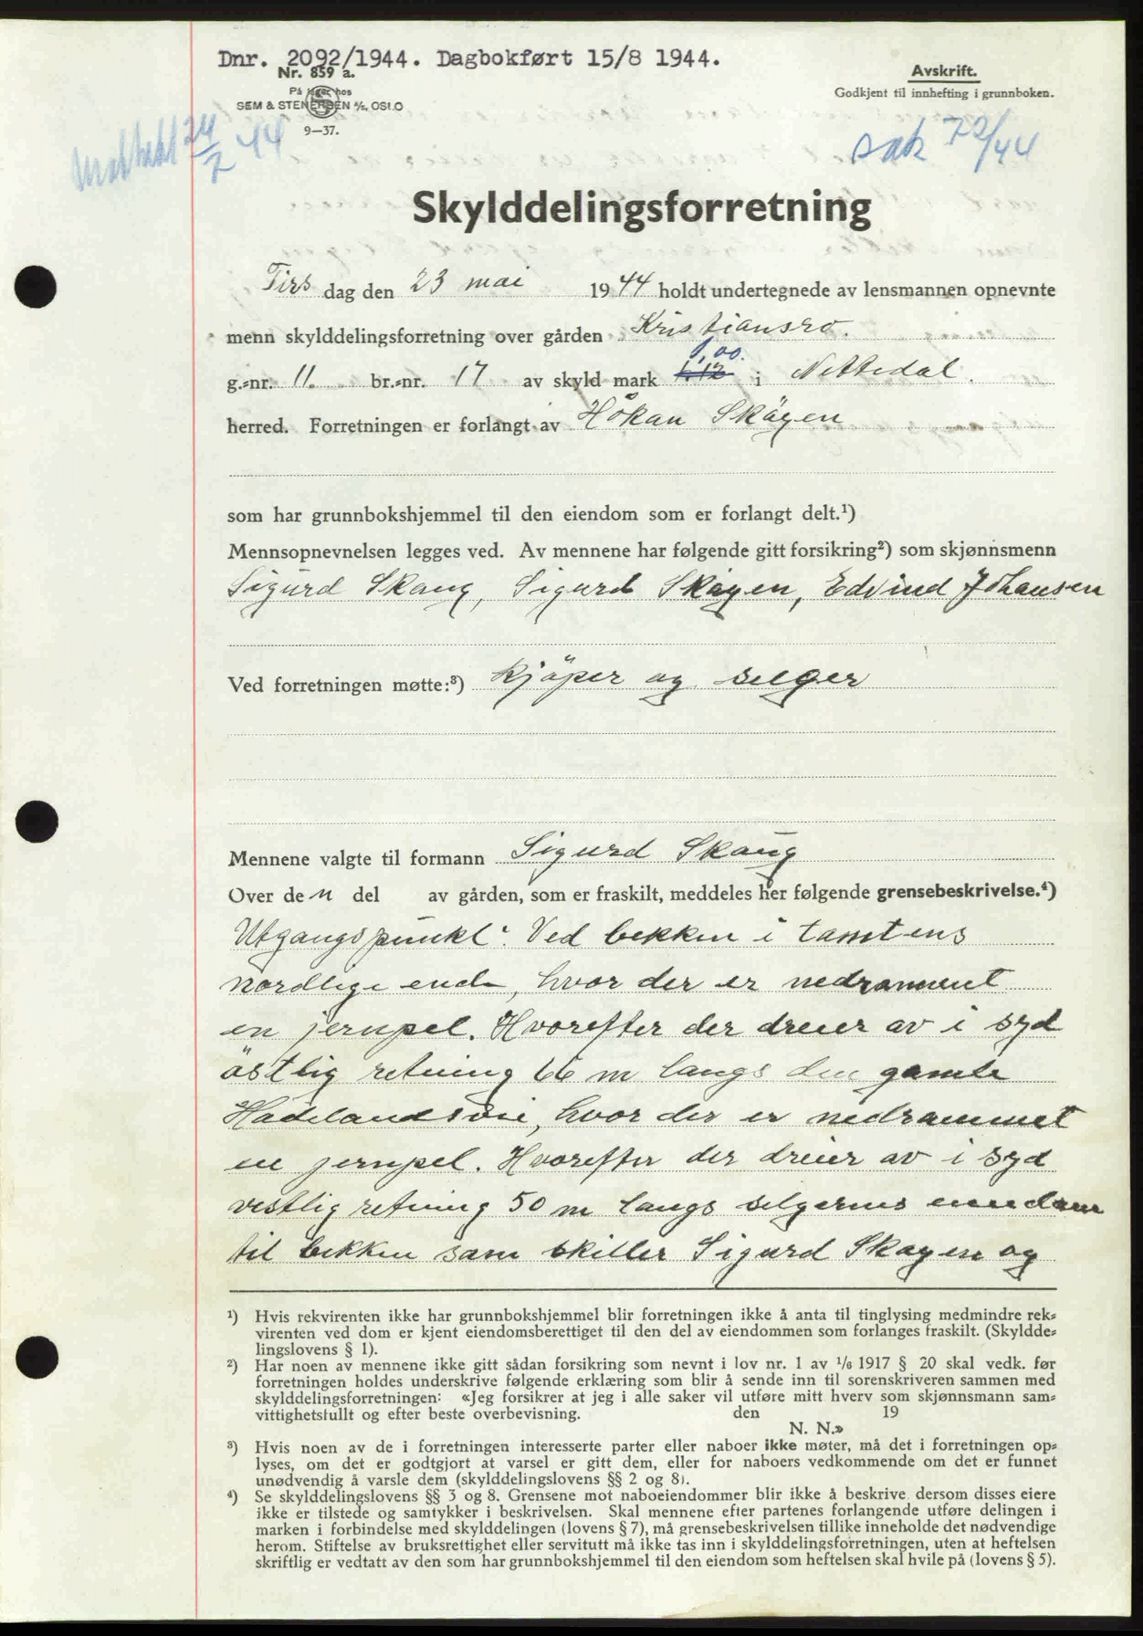 Dnr. 2092/1944. Dagbokført 15/8 1944.
Nr. 859 a.
På lager hos
SEM & STENERSEN A/S, OSLO
9—37.
Avskrift.
Godkjent til innhefting i grunnboken.
24/7 44
sak 72/44
Skylddelingsforretning
Tirs dag den 23 mai 1944 holdt undertegnede av lensmannen opnevnte
menn skylddelingsforretning over gården Kristiansro.
1,00.
g.-nr. 11. br.-nr. 17 av skyld mark 1.12 i Nittedal.
herred. Forretningen er forlangt av Håkan Skäyen
som har grunnbokshjemmel til den eiendom som er forlangt delt.¹)
Mennsopnevnelsen legges ved. Av mennene har følgende gitt forsikring²) som skjønnsmenn
Sigurd Skaug, Sigurd Skøyen, Edvind Johansen
Ved forretningen møtte:³) Kjöper og selger
Mennene valgte til formann Sigurd Skaug
Over de n del av gården, som er fraskilt, meddeles her følgende grensebeskrivelse.⁴)
Utgangspunkt: Ved bekken i tomtens
nordlige ende, hvor der er nedrammet
en jernpel. Hvorefter der dreier av i syd
östlig retning 66 m langs den gamle
Hadelandsvei, hvor der er nedrammet
en jernpel. Hvorefter der dreier av i syd
vestlig retning 50 m langs selgerens eiendom
til bekken som skiller Sigurd Skøyen og
¹) Hvis rekvirenten ikke har grunnbokshjemmel blir forretningen ikke å anta til tinglysing medmindre rek-
virenten ved dom er kjent eiendomsberettiget til den del av eiendommen som forlanges fraskilt. (Skyldde-
lingslovens § 1).
²) Har noen av mennene ikke gitt sådan forsikring som nevnt i lov nr. 1 av 1/6 1917 § 20 skal vedk. før
forretningen holdes underskrive følgende erklæring som blir å sende inn til sorenskriveren sammen med
skylddelingsforretningen: «Jeg forsikrer at jeg i alle saker vil utføre mitt hverv som skjønnsmann sam-
vittighetsfullt og efter beste overbevisning. den 19
N. N.»
³) Hvis noen av de i forretningen interesserte parter eller naboer ikke møter, må det i forretningen op-
lyses, om det er godtgjort at varsel er gitt dem, eller for naboers vedkommende om det er funnet
unødvendig å varsle dem (skylddelingslovens §§ 2 og 8).
⁴) Se skylddelingslovens §§ 3 og 8. Grensene mot naboeiendommer blir ikke å beskrive, dersom disses eiere
ikke er tilstede og samtykker i beskrivelsen. Skal mennene efter partenes forlangende utføre delingen i
marken i forbindelse med skylddelingen (lovens § 7), må grensebeskrivelsen tillike inneholde det nødvendige
herom. Stiftelse av bruksrettighet eller servitutt må ikke tas inn i skylddelingsforretningen, uten at heftelsen
skriftlig er vedtatt av den som har grunnbokshjemmel til den eiendom som heftelsen skal hvile på (lovens § 5).